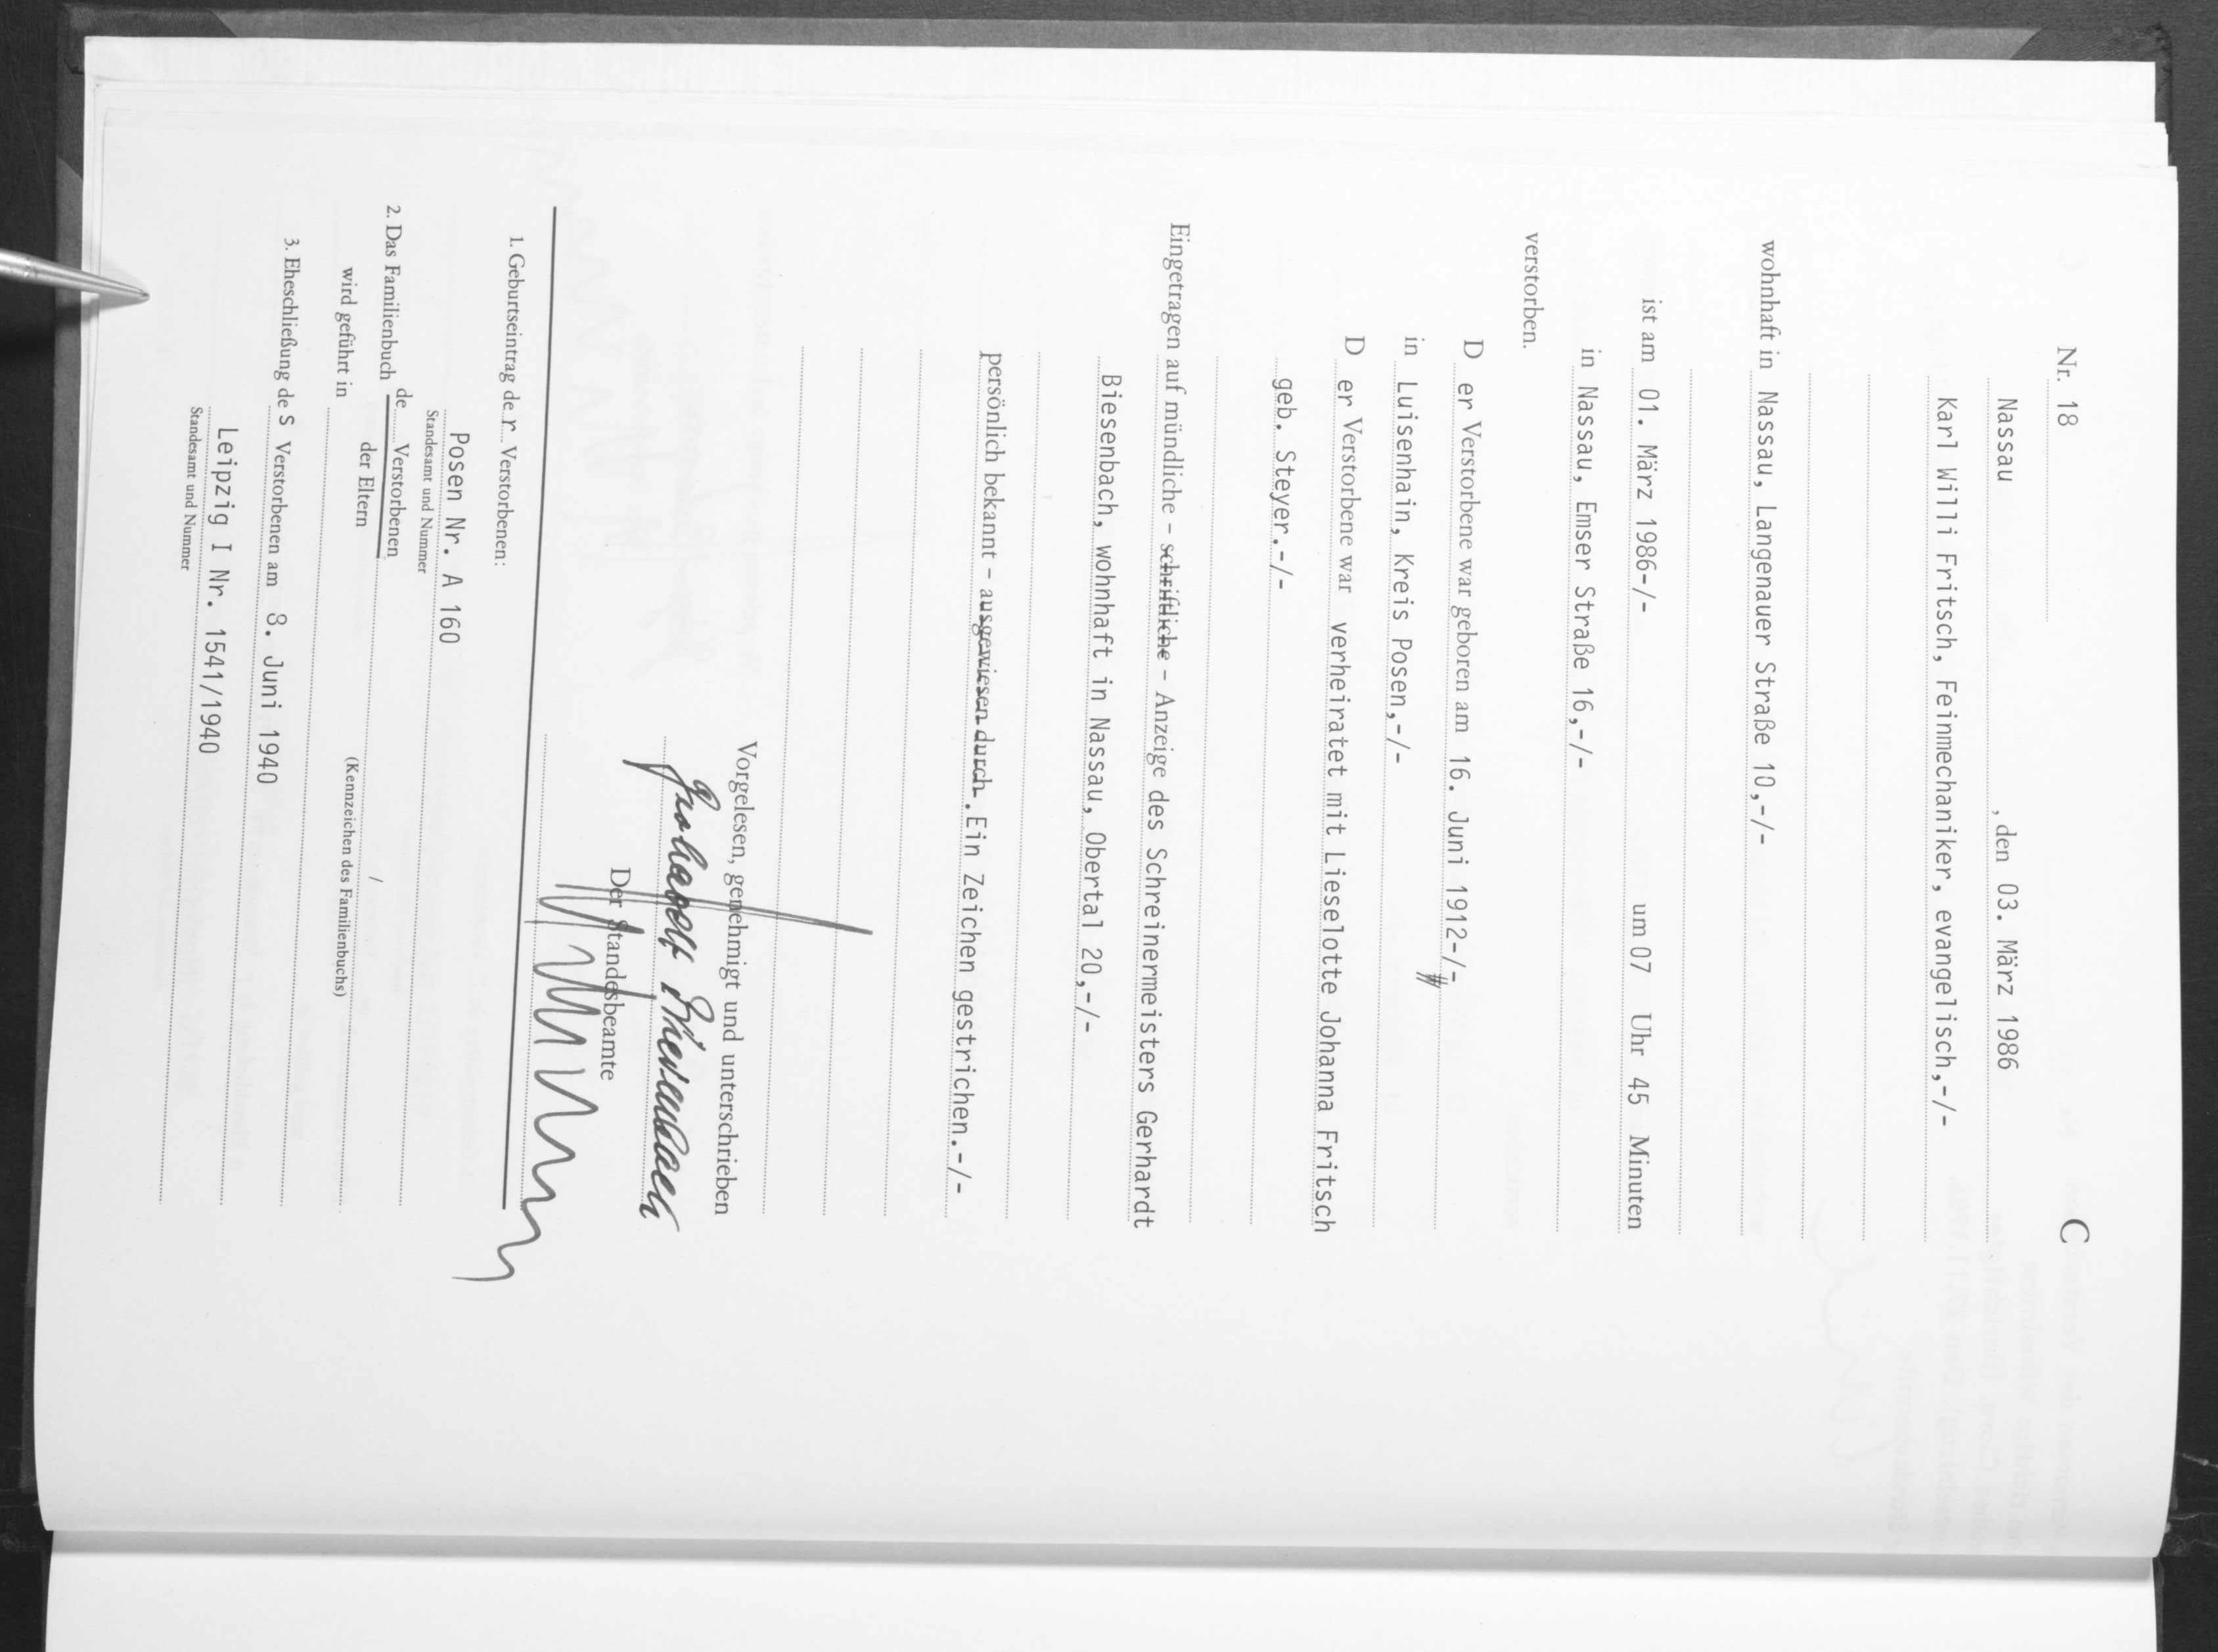 Nr. 18 C
Nassau , den 03. März 1986
Karl Willi Fritsch, Feinmechaniker, evangelisch,-/-
wohnhaft in Nassau, Langenauer Straße 10,-/-
ist am 01. März 1986-/- um 07 Uhr 45 Minuten
in Nassau, Emser Straße 16,-/-
verstorben.
D er Verstorbene war geboren am 16. Juni 1912-/-
in Luisenhain, Kreis Posen,-/-
D er Verstorbene war verheiratet mit Lieselotte Johanna Fritsch
geb. Steyer.-/-
Eingetragen auf mündliche – schriftliche – Anzeige des Schreinermeisters Gerhardt
Biesenbach, wohnhaft in Nassau, Obertal 20,-/-
persönlich bekannt – ausgewiesen durch. Ein Zeichen gestrichen.-/-
Vorgelesen, genehmigt und unterschrieben
Gerhardt Biesenbach
Der Standesbeamte
1. Geburtseintrag de r Verstorbenen:
Posen Nr. A 160
Standesamt und Nummer
2. Das Familienbuch de Verstorbenen
der Eltern /
wird geführt in
(Kennzeichen des Familienbuchs)
3. Eheschließung de s Verstorbenen am 8. Juni 1940
Leipzig I Nr. 1541/1940
Standesamt und Nummer